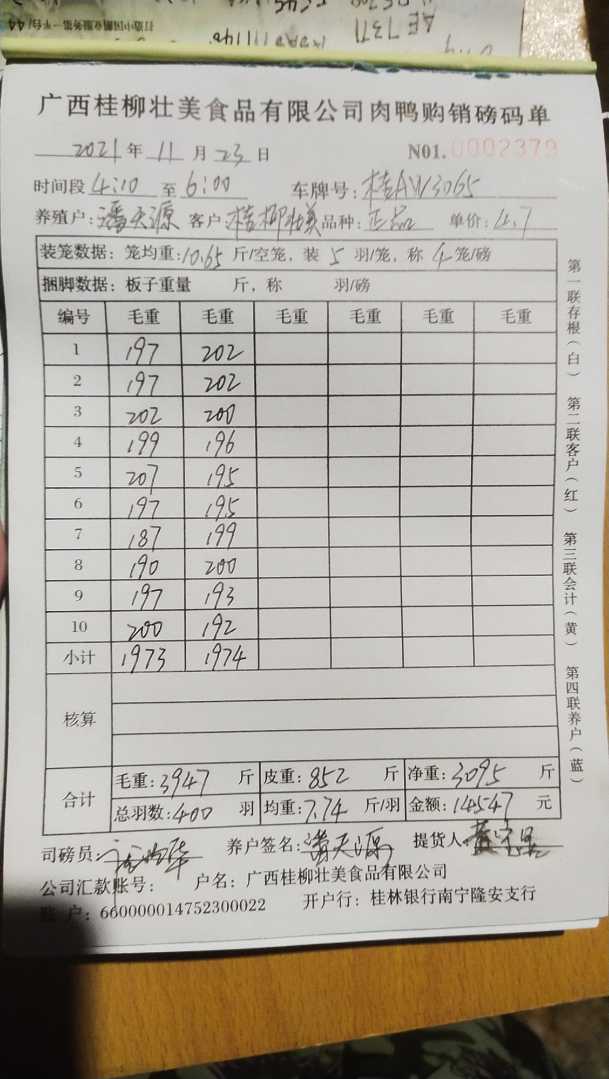 打造中国鹏业服务第一平台/44
广西桂柳壮美食品有限公司肉鸭购销磅码单
2021年 11月 23日 N01.0002379
时间段 4:10 至 6:00 车牌号: 桂AW3065
养殖户: 潘天源 客户: 桂柳壮美 品种: 正品 单价: 4.7
装笼数据: 笼均重: 10.65 斤/空笼, 装 5 羽/笼, 称 4 笼/磅
捆脚数据: 板子重量 斤, 称 羽/磅
编号 毛重 毛重 毛重 毛重 毛重 毛重
1 197 202
2 197 202
3 202 200
4 199 196
5 207 195
6 197 195
7 187 199
8 190 200
9 197 193
10 200 192
小计 1973 1974
核算
合计 毛重: 3947 斤 皮重: 852 斤 净重: 3095 斤
总羽数: 400 羽 均重: 7.74 斤/羽 金额: 14547 元
司磅员: 养户签名: 潘天源 提货人:
公司汇款账号: 户名: 广西桂柳壮美食品有限公司
账户: 660000014752300022 开户行: 桂林银行南宁隆安支行
第一联存根(白) 第二联客户(红) 第三联会计(黄) 第四联养户(蓝)